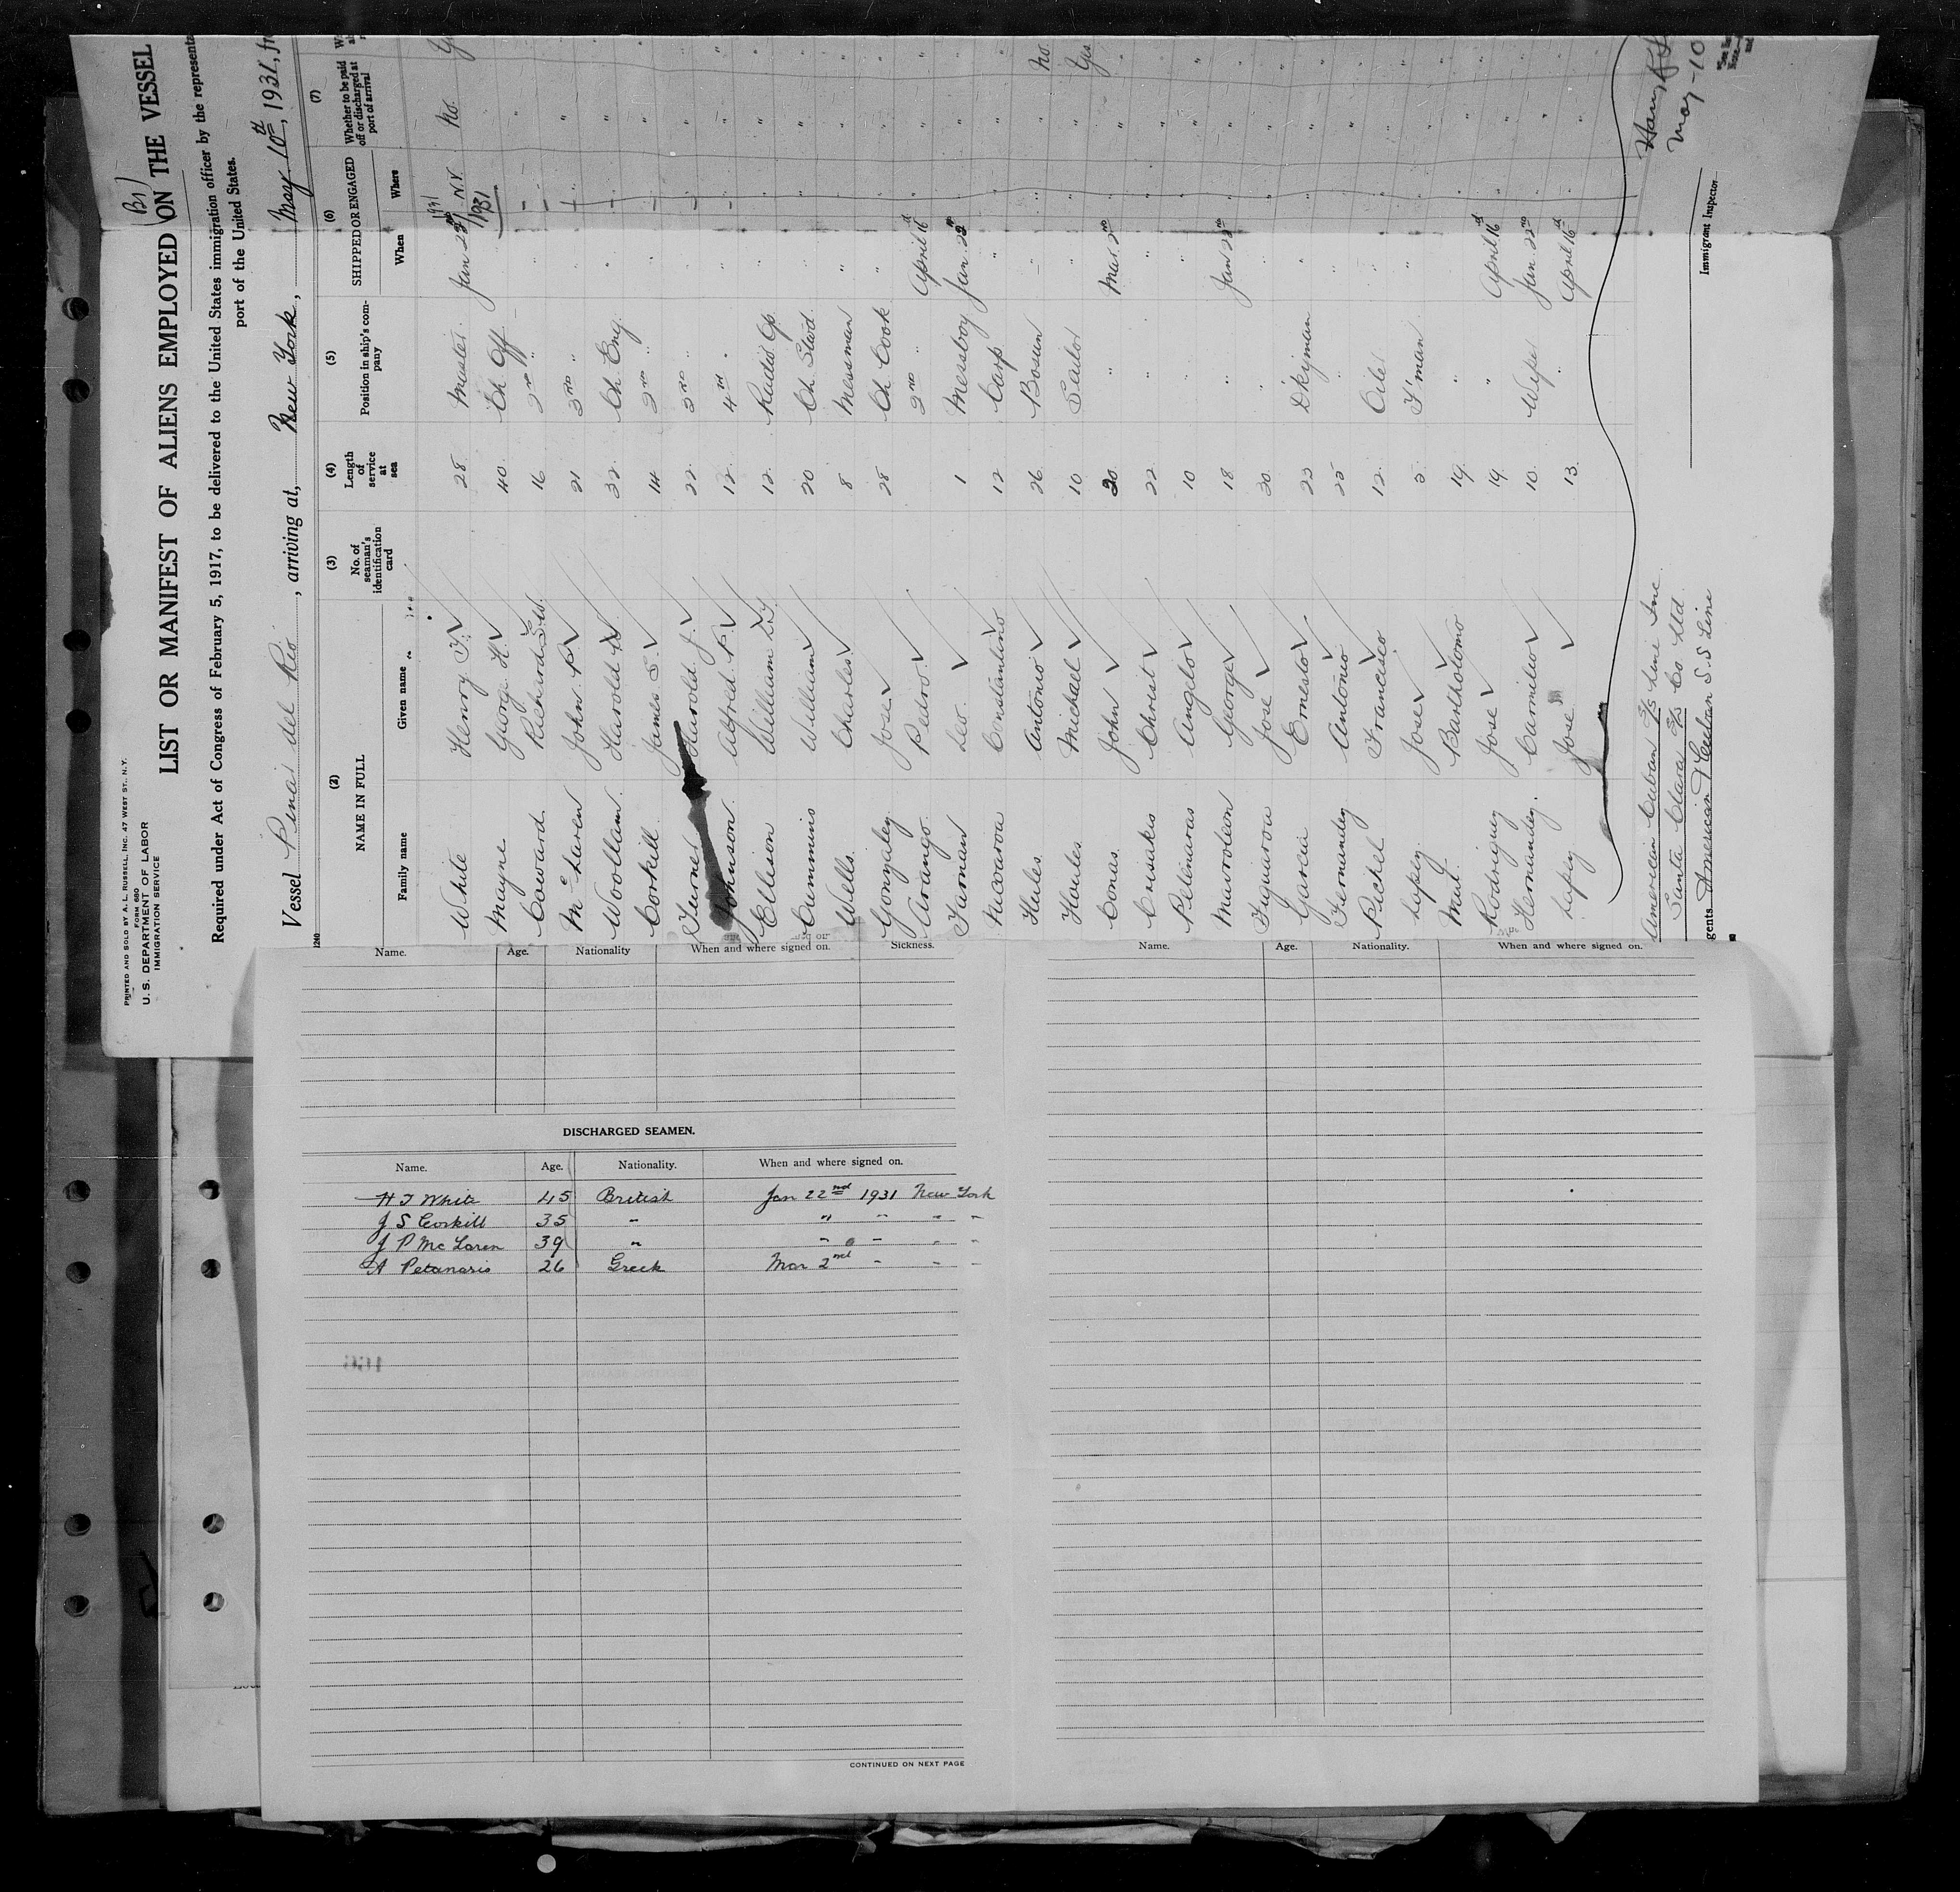 PRINTED AND SOLD BY A. L. RUSSELL, INC. 47 WEST ST., N.Y.
FORM 680
U. S. DEPARTMENT OF LABOR
IMMIGRATION SERVICE
(Br)
LIST OR MANIFEST OF ALIENS EMPLOYED ON THE VESSEL
Required under Act of Congress of February 5, 1917, to be delivered to the United States immigration officer by the representa
port of the United States.
Vessel Pinar del Rio, arriving at, New York, May 10th, 1931, fr
1240
(2) (3) (4) (5) (6) (7)
NAME IN FULL
Family name Given name
No. of seaman's identification card
Length of service at sea
Position in ship's company
SHIPPED OR ENGAGED
When Where
Whether to be paid off or discharged at port of arrival
White Henry T. 28 Master Jan 22nd 1931 N.Y. No.
Mayne George H. 40 Ch Off "
Coward Richard 16 2nd " " "
McLaren John P. 21 3rd " " "
Woollam Harold 32 Ch Eng. " "
Corkill James S. 14 2nd " " "
Turner Harold J. 22 3rd " " "
Johnson Alfred P. 12 4th " " "
Ellison William 12 Radio Op. " "
Cummins William 20 Ch. Stwd. " "
Wells Charles 8 Messman " "
Gonzalez Jose 28 Ch Cook " "
Arango Pedro 2nd " April 16th "
Farnan Leo. 1 Messboy Jan 22nd "
Nicoarva Constantino 12 Carp " "
Hules Antonio 26 Bosun " " No
Houles Michael 10 Sailor " " Yes
Conas John 20 " Mar. 2nd " "
Crisakis Christ 22 " " " "
Petinaras Angelo 10 " " " "
Mavroleon George 18 " Jan 22nd " "
Figuiroa Jose 30 " " " "
Garcia Ernesto 22 D'kyman " " "
Fernandez Antonio 25 " " " "
Pichel Francisco 12 Oiler " " "
Lopez Jose 2 F'man " " "
Mul Bartholomo 19 " " "
Rodriguez Jose 19 " April 16th " "
Hernandez Carmilio 10 Wiper Jan 22nd " "
Lopez Jose 13 " April 16th " "
American Cuban S/S Line Inc
Santa Clara S/S Co Ltd
gents American Cuban S S Line
May-10
Immigrant Inspector
Name. Age. Nationality When and where signed on. Sickness.
Name. Age. Nationality. When and where signed on.
DISCHARGED SEAMEN.
Name. Age. Nationality. When and where signed on.
H T White 45 British Jan 22nd 1931 New York
J S Corkill 35 " " " " "
J P McLaren 39 " " " " "
A Petanaris 26 Greek Mar 2nd " " "
CONTINUED ON NEXT PAGE